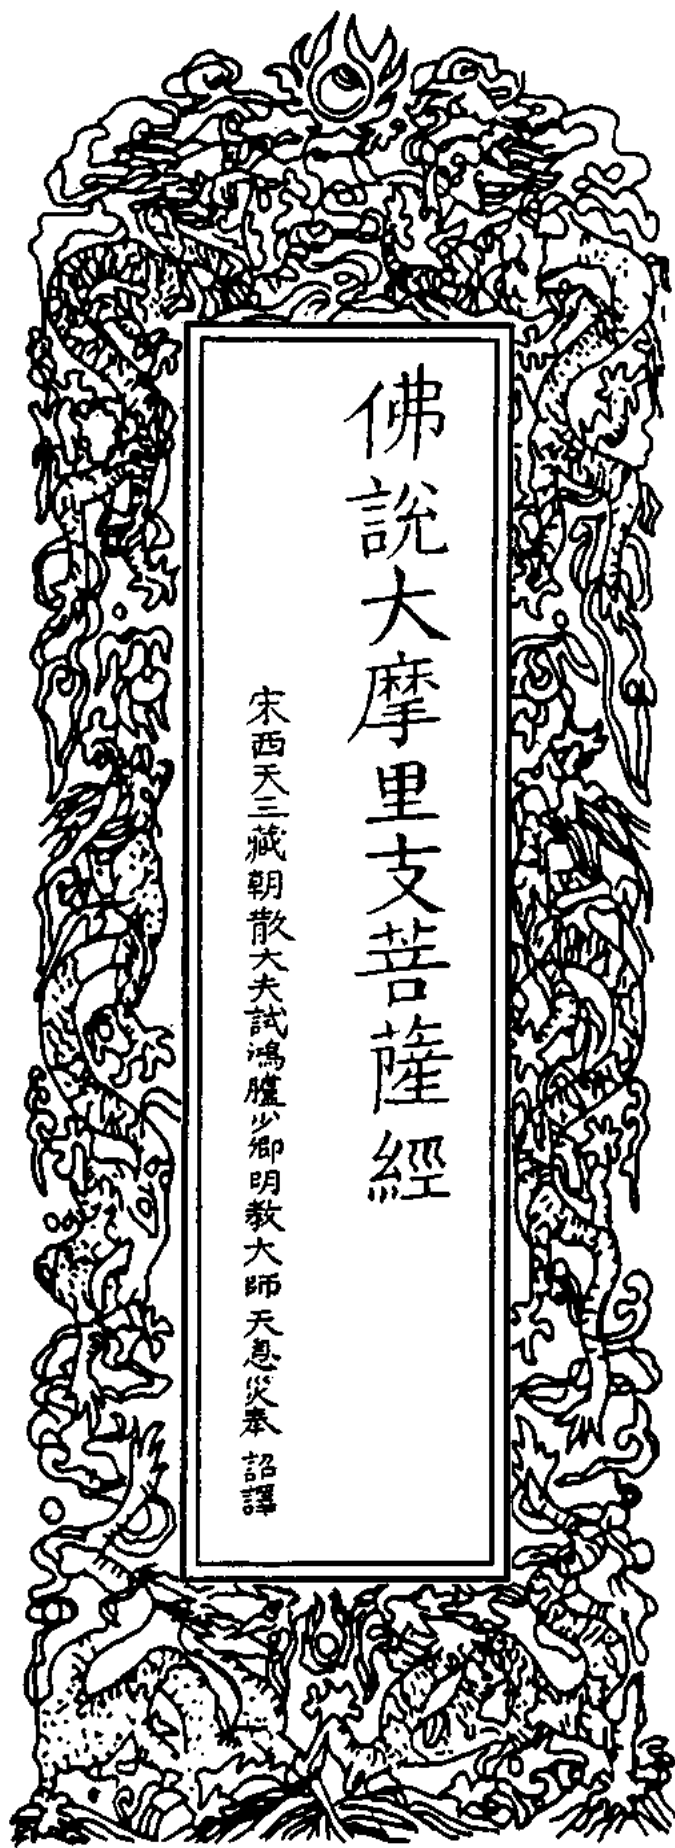 佛說大摩里支菩薩經
宋西天三藏朝散大夫試鴻臚少卿明教大師天息災奉 詔譯